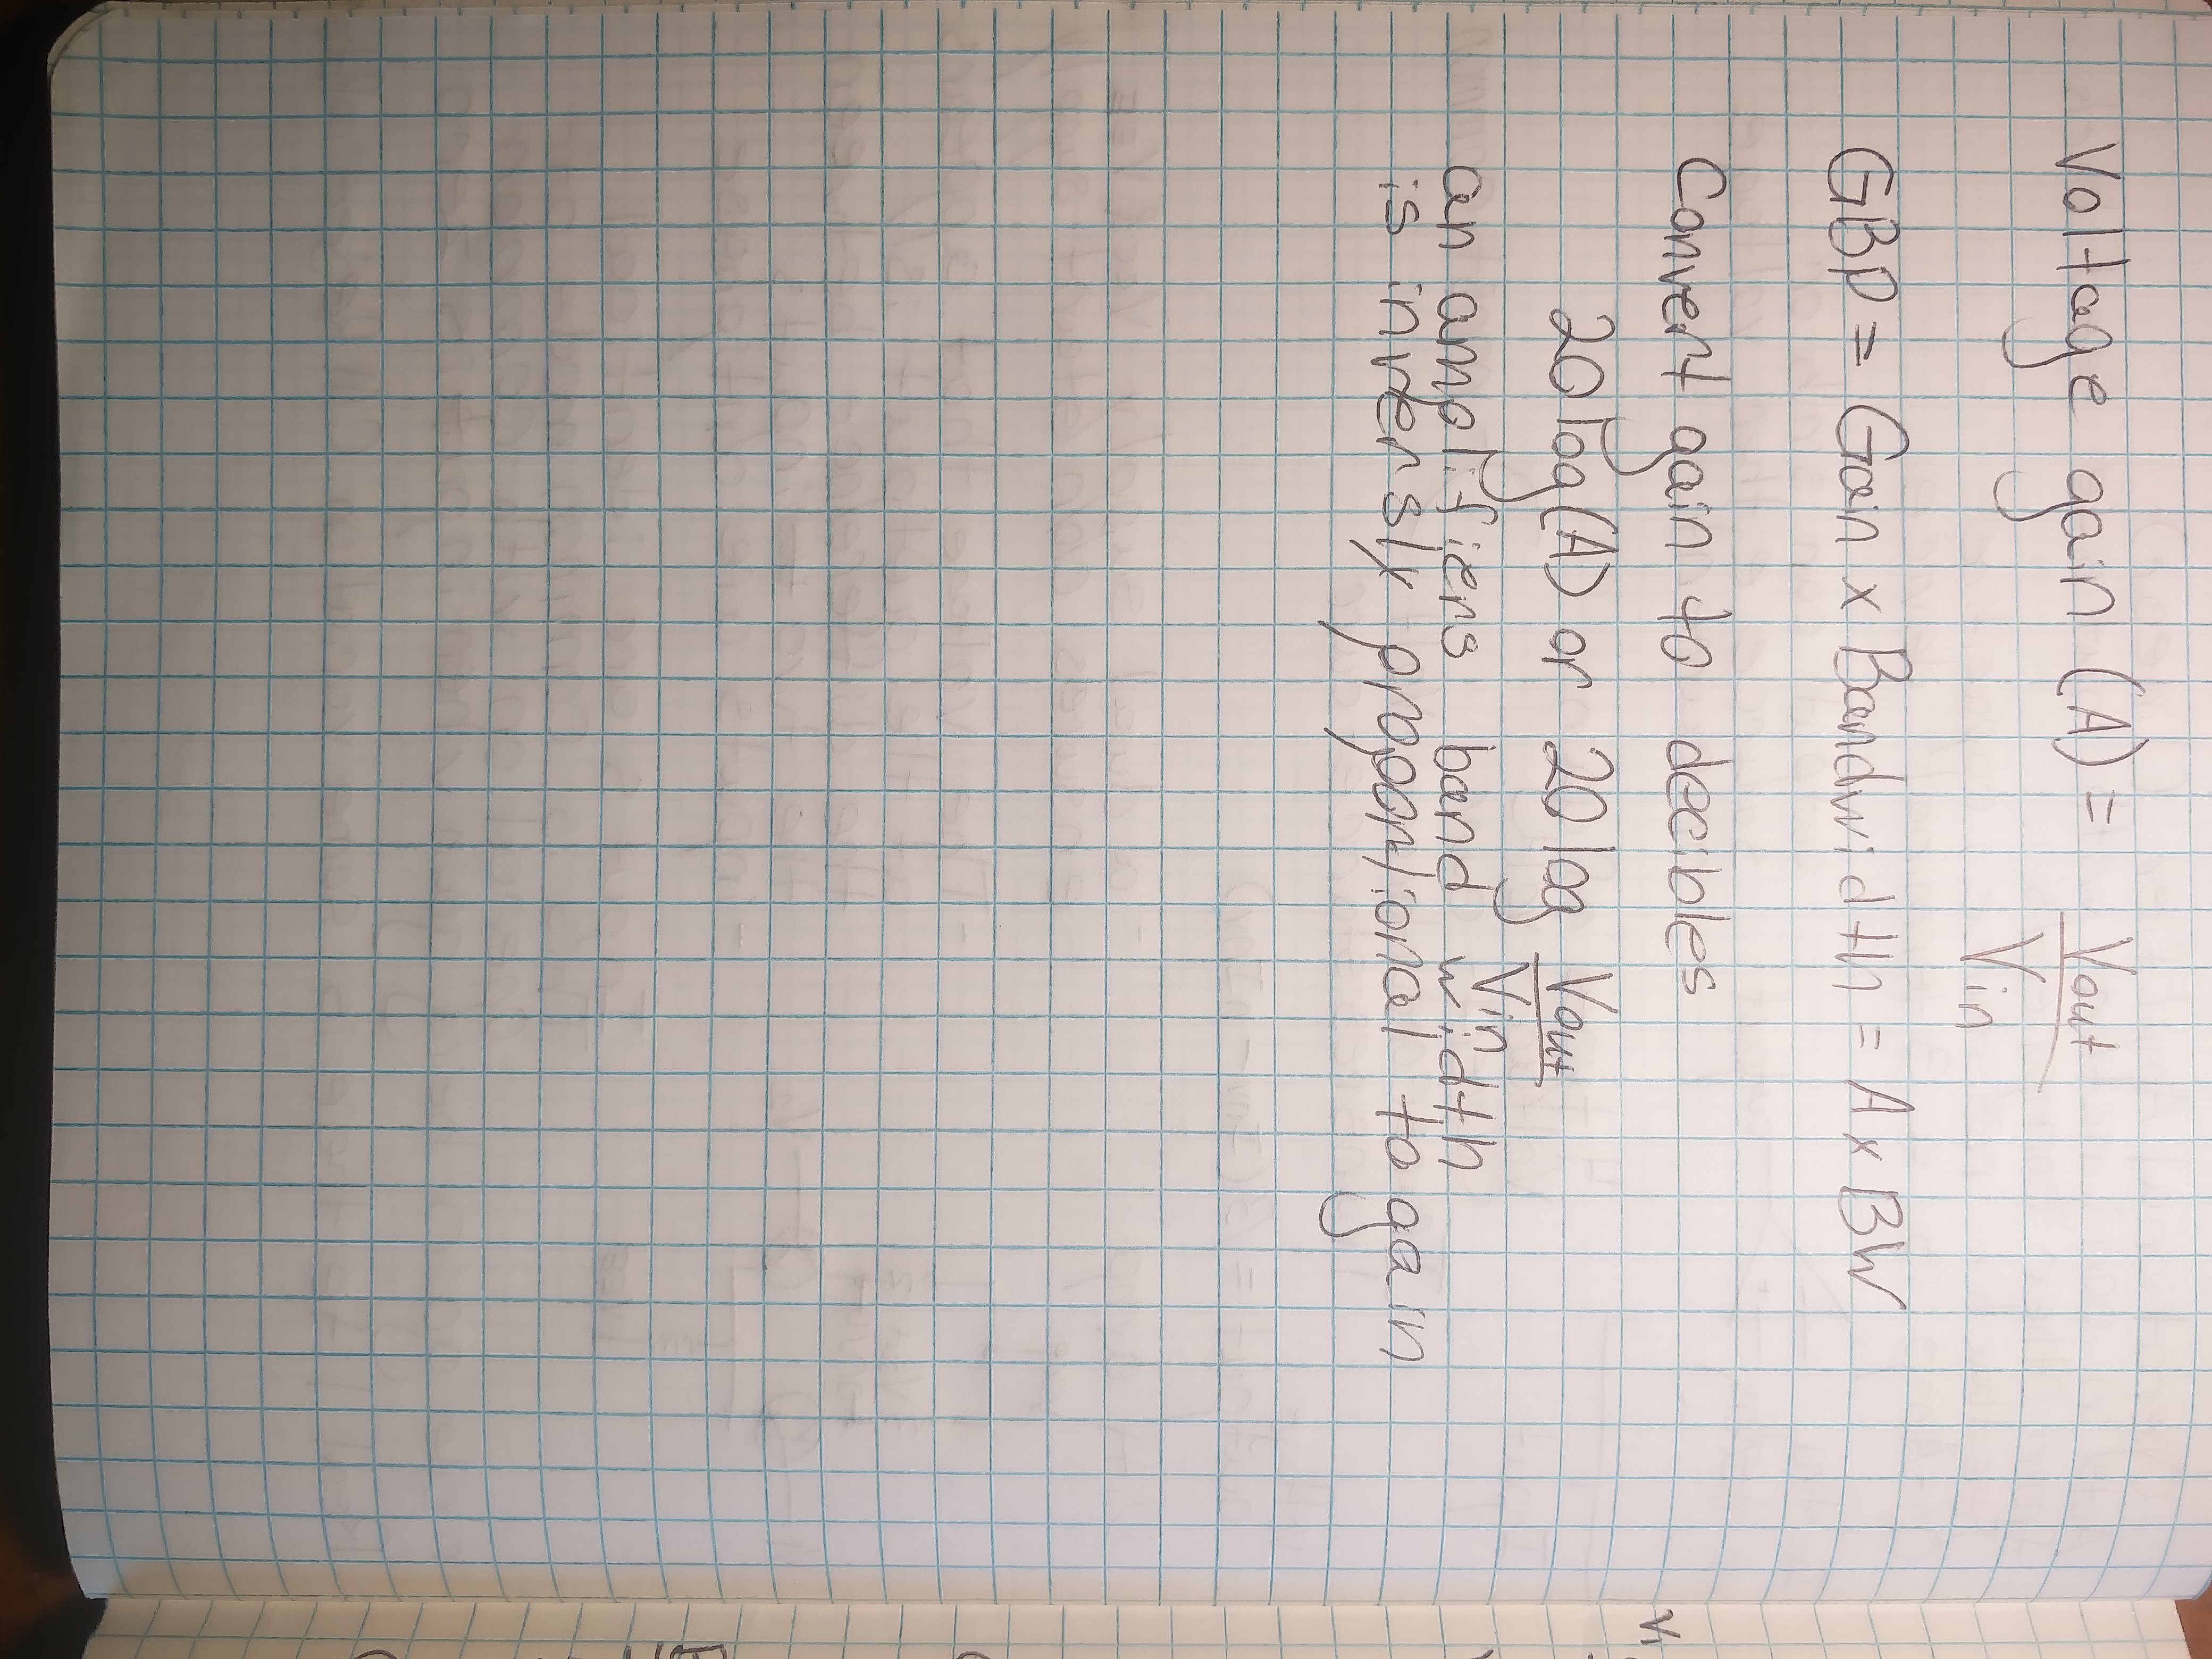 Voltage gain (A) = Vout
Vin
GBP = Gain x Bandwidth = A x BW
Convert gain to decibles
20 log(A) or 20 log Vout
Vin
an amplifiers band width
is inversly proportional to gain